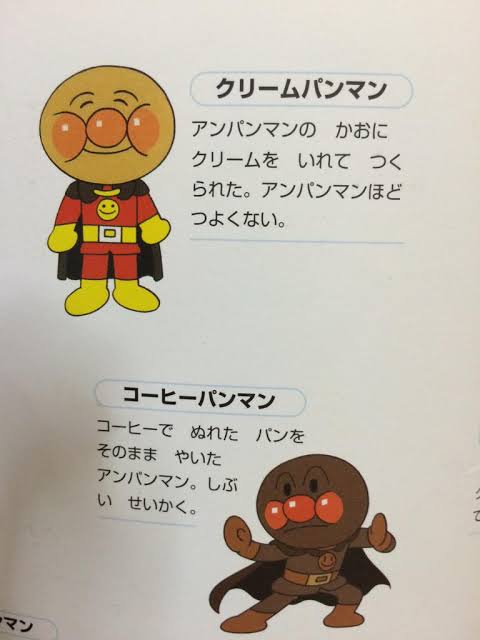 クリームパンマン
アンパンマンの　かおに
クリームを　いれて　つく
られた。アンパンマンほど
つよくない。
コーヒーパンマン
コーヒーで　ぬれた　パンを
そのまま　やいた
アンパンマン。しぶ
い　せいかく。
マン